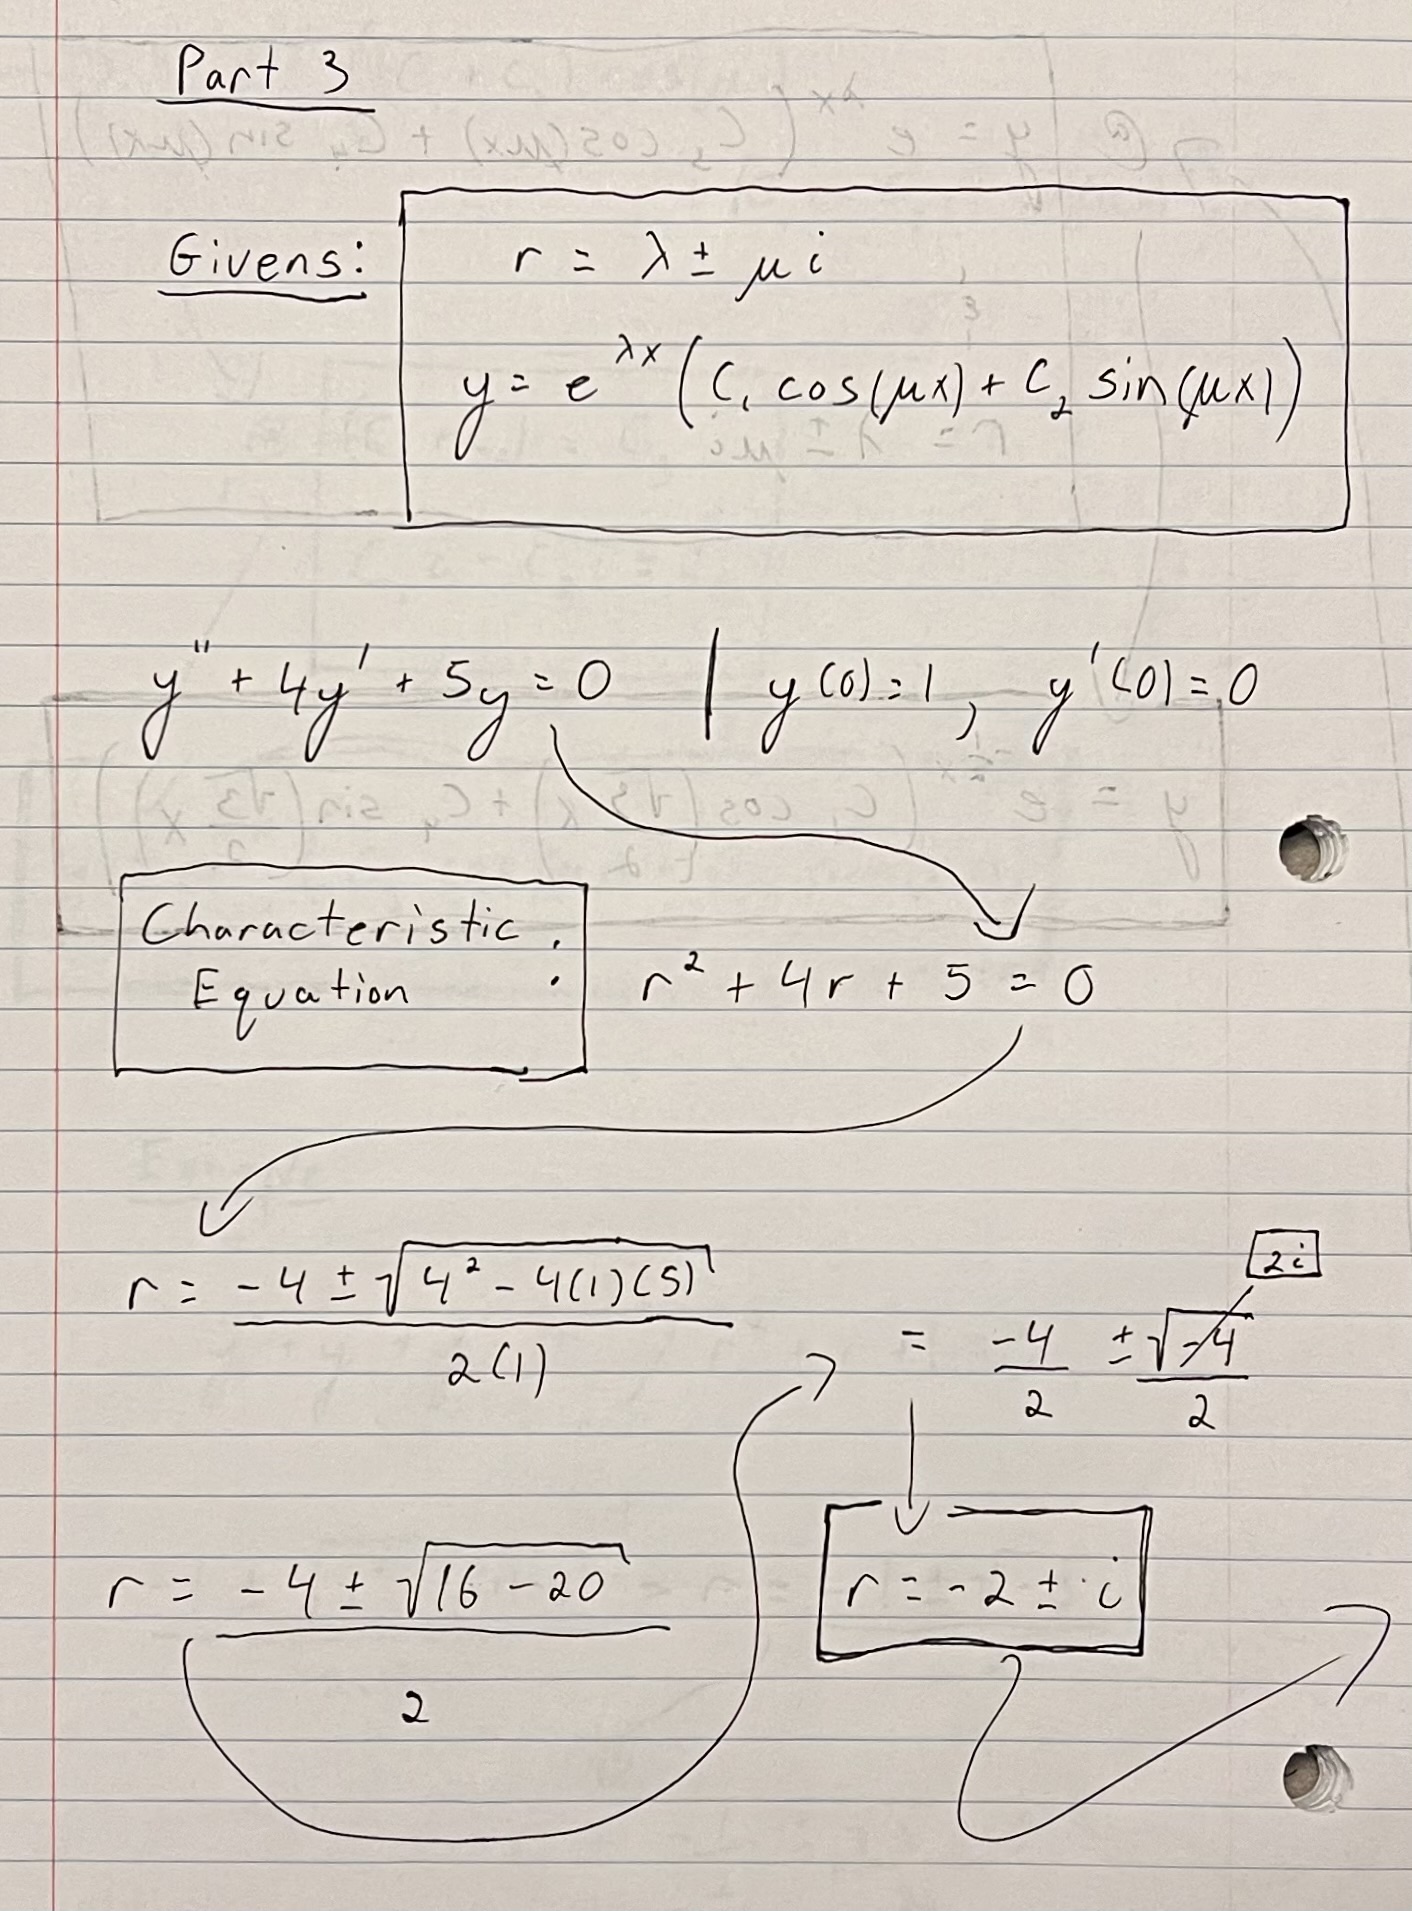 Part 3
Givens:
r = λ ± μi
y = e^λx (C₁ cos(μx) + C₂ sin(μx))
y" + 4y' + 5y = 0 | y(0) = 1, y'(0) = 0
Characteristic
Equation :
r² + 4r + 5 = 0
r = -4 ± √(4² - 4(1)(5)) / 2(1)
r = -4 ± √(16 - 20) / 2
2i
= -4/2 ± √-4/2
r = -2 ± i